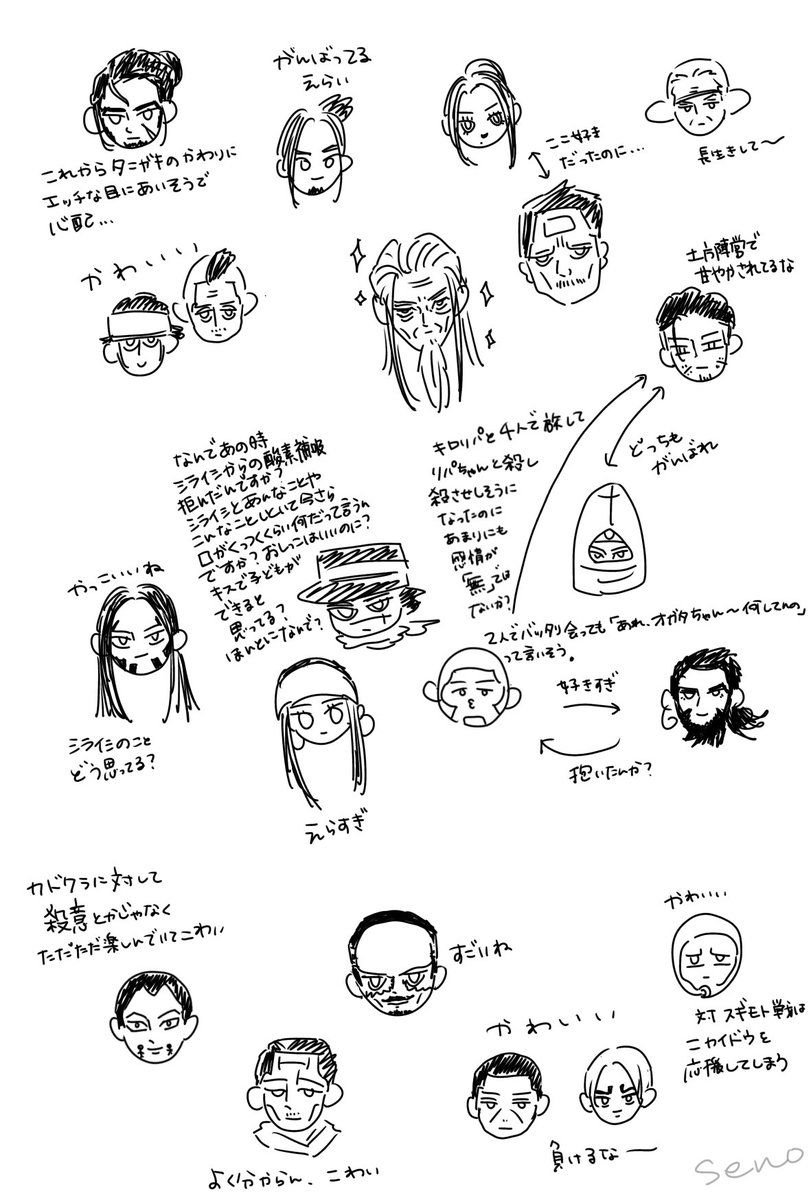 がんばってる
えらい
これからタニガキのかわりに
エッチな目にあいそうで
心配...
ここ好き
だったのに...
長生きして〜
かわいいい
土方陣営で
甘やかされてるな
なんであの時
シライシからの酸素補給
拒んだんですか?
シライシとあんなことや
こんなことしといて今さら
口がくっつくくらい何だって言うん
ですか?おしっこはいいのに?
キスで子どもが
できると
思ってる?
ほんとになんで?
キロリパと4人で旅して
リパちゃんと殺し
殺させしそうに
なったのに
あまりにも
感情が
「無」では
ないか?
どっちも
がんばれ
2人でバッタリ会っても「あれ、オガタちゃん〜何してんの」
って言いそう。
やっこいいね
シライシのこと
どう思ってる?
えらすぎ
好きすぎ
抱いたんか?
カドクラに対して
殺意とかじゃなく
ただただ楽しんでいてこわい
すごいね
かわいい
対スギモト戦は
ニカイドウを
応援してしまう
かわいいい
負けるなー
よく分からん、こわい
seno